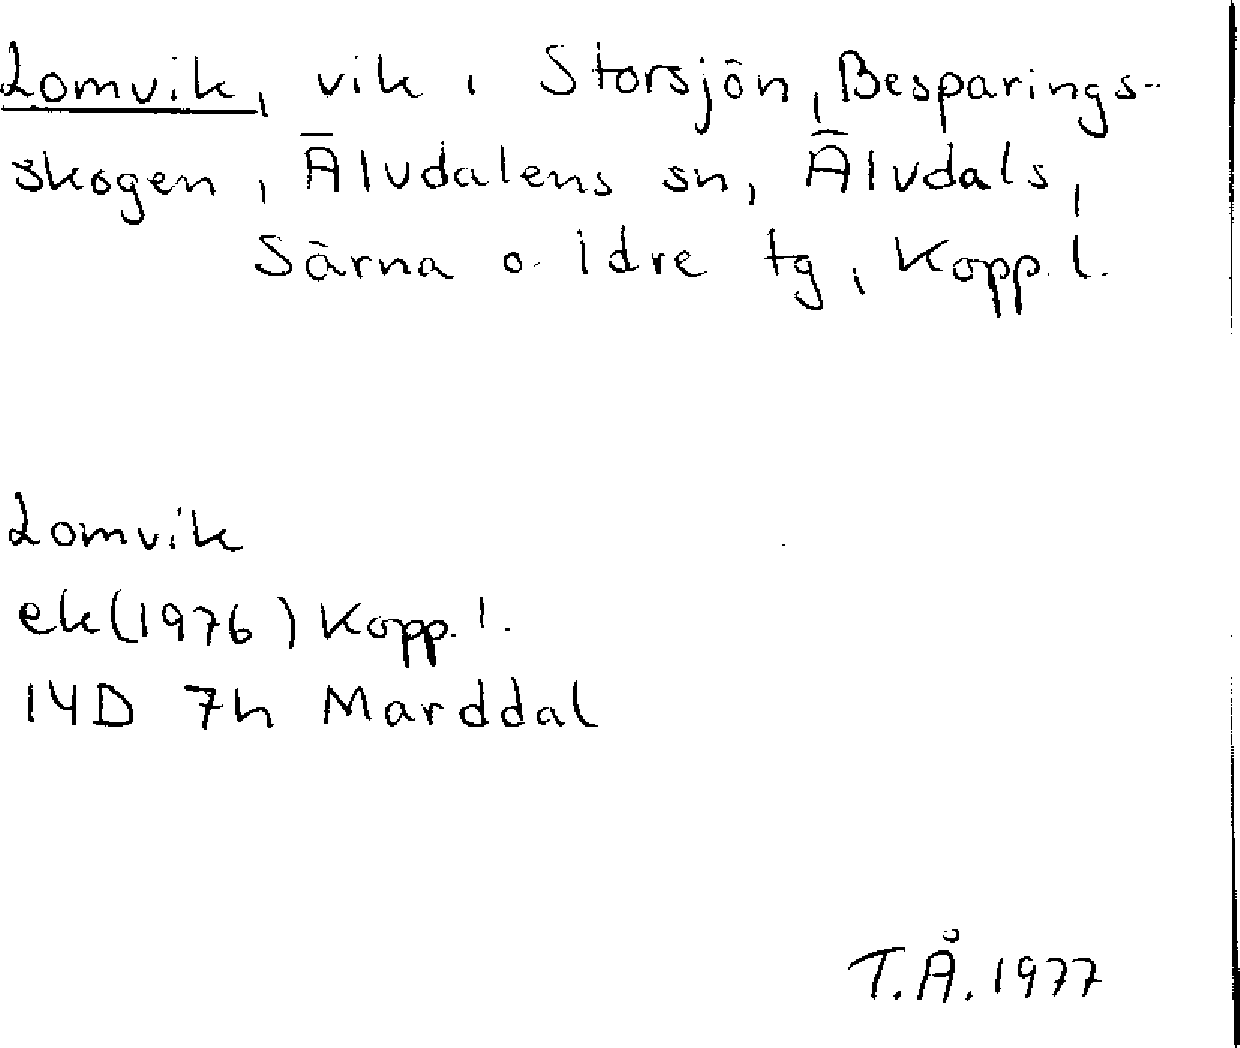 Lomvik, vik i Storsjön, Besparings-
skogen, Älvdalens sn, Älvdals,
Särna o. Idre tg, Kopp. l.
Lomvik
ek (1976) Kopp. l.
14D 7h Marddal
T.Å. 1977